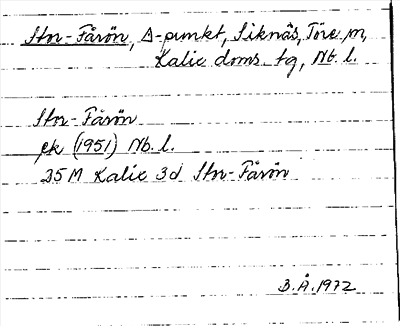 Stor-Fårön, Δ-punkt, Siknäs, Töre sn,
Kalix doms. tg, Nb. l.
Stor-Fårön
ek (1951) Nb. l.
25 M Kalix 3d Stor-Fårön
B.Å. 1972